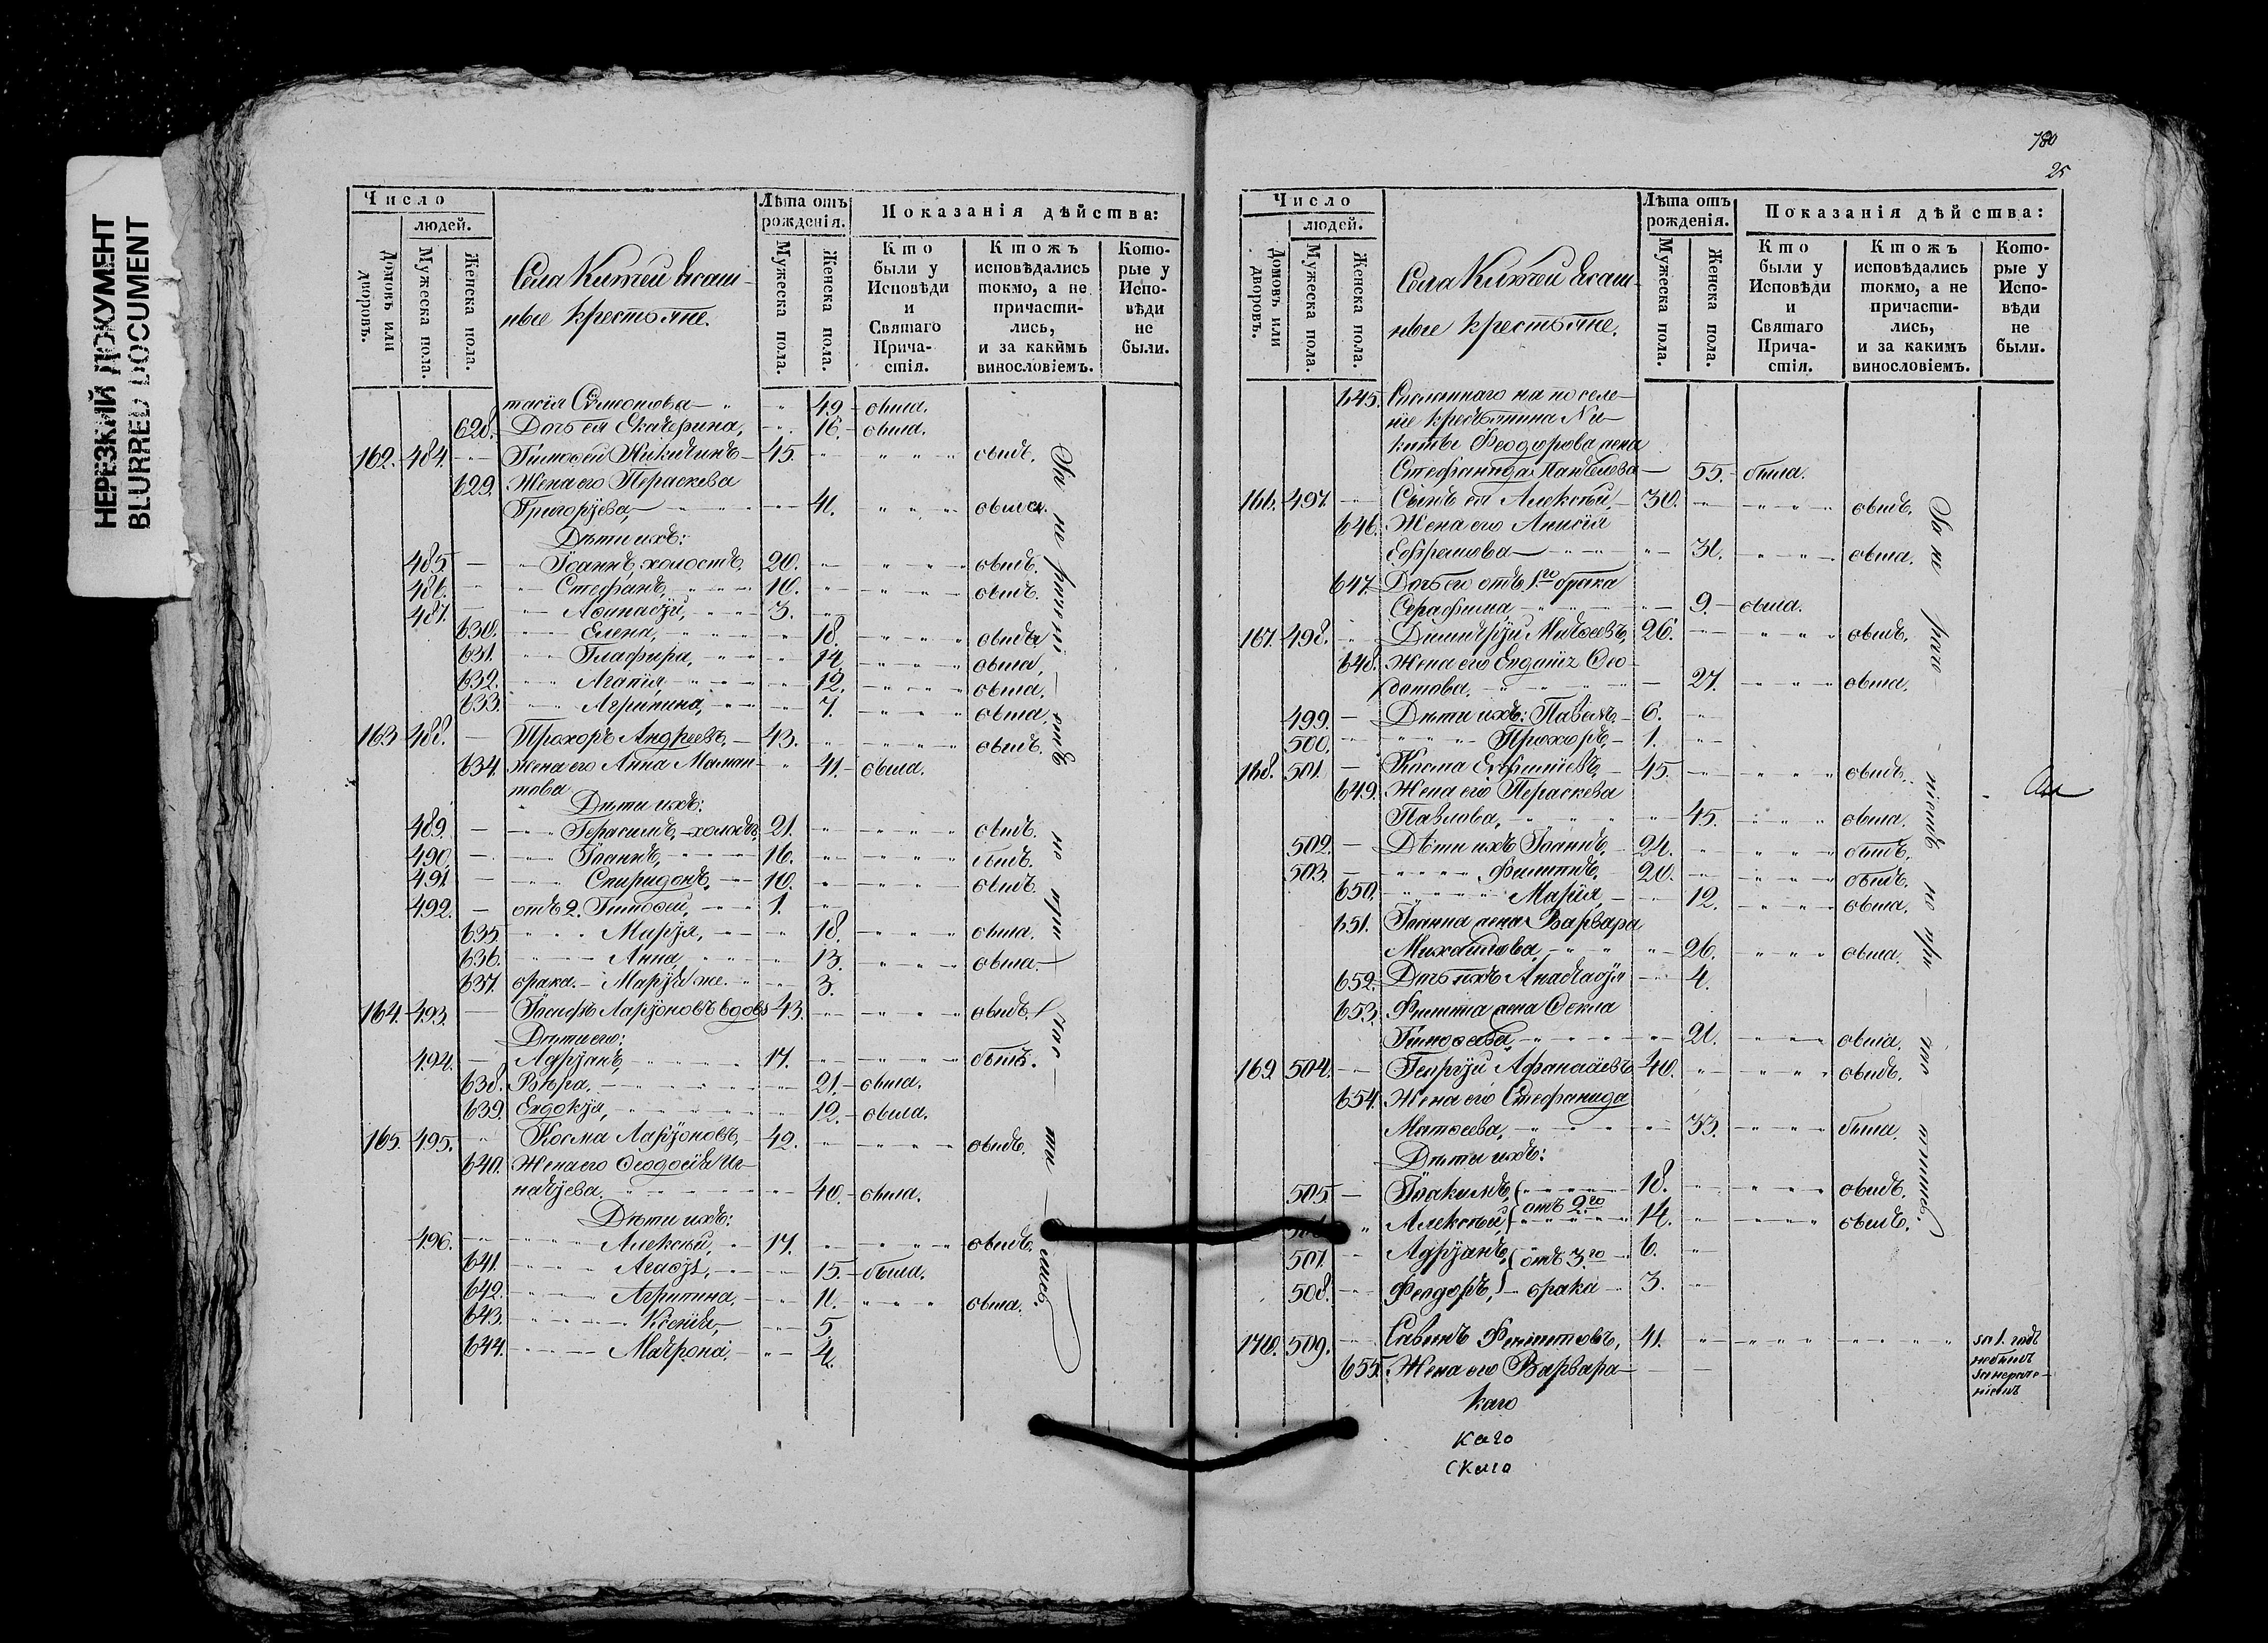 НЕРЕЗКИЙ ДОКУМЕНТ
BLURRED DOCUMENT
Число
людей.
Домовъ или дворовъ.
Мужеска пола.
Женска пола.
Села Китой Ясаш-
ные крестьяне.
Лѣта отъ рожденія.
Мужеска пола.
Женска пола.
Показанія дѣйства:
Кто были у Исповѣди и Святаго Прича-стія.
Ктожъ исповѣдались токмо, а не причасти-лись, и за какимъ винословіемъ.
Кото-рые у Испо-вѣди не были.
тасія Симеонова 49. была.
628. Дочь ея Екатерина, 16. была.
162. 484. Тимоѳей Никитинъ 45. былъ.
629. Жена его Параскева
Григорьева, 41. была.
Дѣти ихъ:
485. Іоаннъ холостъ, 20. былъ.
486. Стефанъ, 10. былъ.
487. Аѳанасій, 3.
630. Елена, 18. была
631. Глафира, 14. была,
632. Агапія, 12. была.
633. Агрипина, 7. была.
163 488. Прохоръ Андреевъ, 43. былъ.
634. жена его Анна Маман-
това 41. была.
Дѣти ихъ:
489. Герасимъ, холостъ, 21. былъ.
490. Іоаннъ, 16. былъ.
491. Спиридонъ, 10. былъ.
492. отъ 2. Тимоѳей, 1.
635. Марія, 18. была.
636. Анна, 13. была.
637. брака. Марія же. 3.
164. 493. Іосифъ Ларіоновъ вдовъ 43. былъ.
Дѣти его:
494. Адріанъ, 17. былъ.
638. Вѣра, 21. была.
639. Евдокія, 12. была.
165. 495. Косма Ларіоновъ, 42. былъ.
640. Жена его Ѳеодосія Иг-
натьева. 40. была.
Дѣти ихъ:
496. Алексѣй, 17. былъ.
641. Агаѳія, 15. была.
642. Агрипина, 11. была.
643. Ксенія, 5
644. Матрона, 4.
780
25
Число
людей.
Домовъ или дворовъ.
Мужеска пола.
Женска пола.
Села Китой Ясаш-
ные крестьяне.
Лѣта отъ рожденія.
Мужеска пола.
Женска пола.
Показанія дѣйства:
Кто были у Исповѣди и Святаго Прича-стія.
Ктожъ исповѣдались токмо, а не причасти-лись, и за какимъ винословіемъ.
Кото-рые у Испо-вѣди не были.
645. Сосланнаго на поселе-
ніе крестьянина Ни-
киты Феодорова жена
Стефанида 55. была.
166. 497. Сынъ ея Алексѣй, 30. былъ.
646. Жена его Анисія
Ефремова 31. была.
647. Дочь его отъ 1го брака
Серафима 9. была.
167. 498. Димитрій Матѳеевъ, 26. былъ.
648. Жена его Евдокія Ѳео-
дотова. 27. была.
499. Дѣти ихъ: Павелъ, 6.
500. Прохоръ, 1.
168. 501. Косма 45. былъ.
649. Жена его Параскева
Павлова, 45. была.
502. Дѣти ихъ Іоаннъ, 24. былъ.
503. Филиппъ, 20. былъ.
650. Марія, 12. была.
651. Іоанна жена Варвара
Михайлова, 26. была.
652. Дочь ихъ Анастасія 4.
653. Филиппа жена Ѳекла
Тимоѳеева, 21. была.
169. 504. Георгій Афанасіевъ 40. былъ.
654. Жена его Стефанида
Матѳеева, 33. была.
Дѣти ихъ:
505. Іоакимъ, 18. былъ.
отъ 2го
Алексѣй, 14. былъ.
507. Адріанъ, отъ 3го 6.
508. Феодоръ, брака 3.
170. 509. Савинъ Филипповъ, 41. за 1. годъ
не былъ
за нераче-
ніемъ
655. Жена его Варвара
каго
каго
скаго